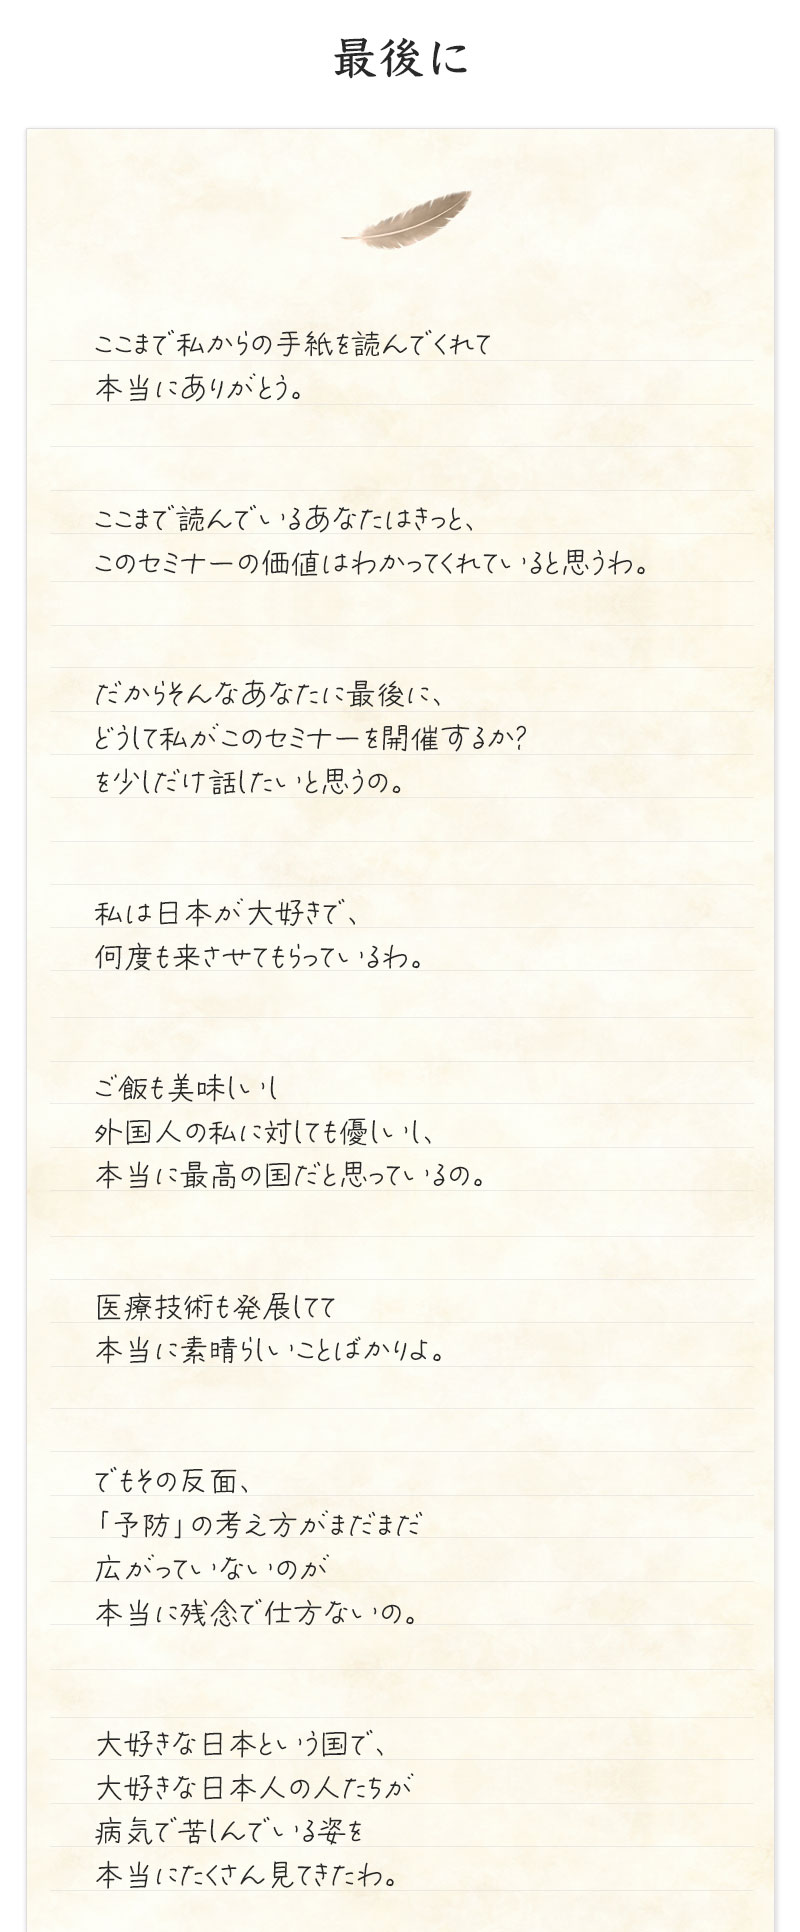 最後に
ここまで私からの手紙を読んでくれて
本当にありがとう。
ここまで読んでいるあなたはきっと、
このセミナーの価値はわかってくれていると思うわ。
だからそんなあなたに最後に、
どうして私がこのセミナーを開催するか?
を少しだけ話したいと思うの。
私は日本が大好きで、
何度も来させてもらっているわ。
ご飯も美味しいし
外国人の私に対しても優しいし、
本当に最高の国だと思っているの。
医療技術も発展してて
本当に素晴らしいことばかりよ。
でもその反面、
「予防」の考え方がまだまだ
広がっていないのが
本当に残念で仕方ないの。
大好きな日本という国で、
大好きな日本人の人たちが
病気で苦しんでいる姿を
本当にたくさん見てきたわ。